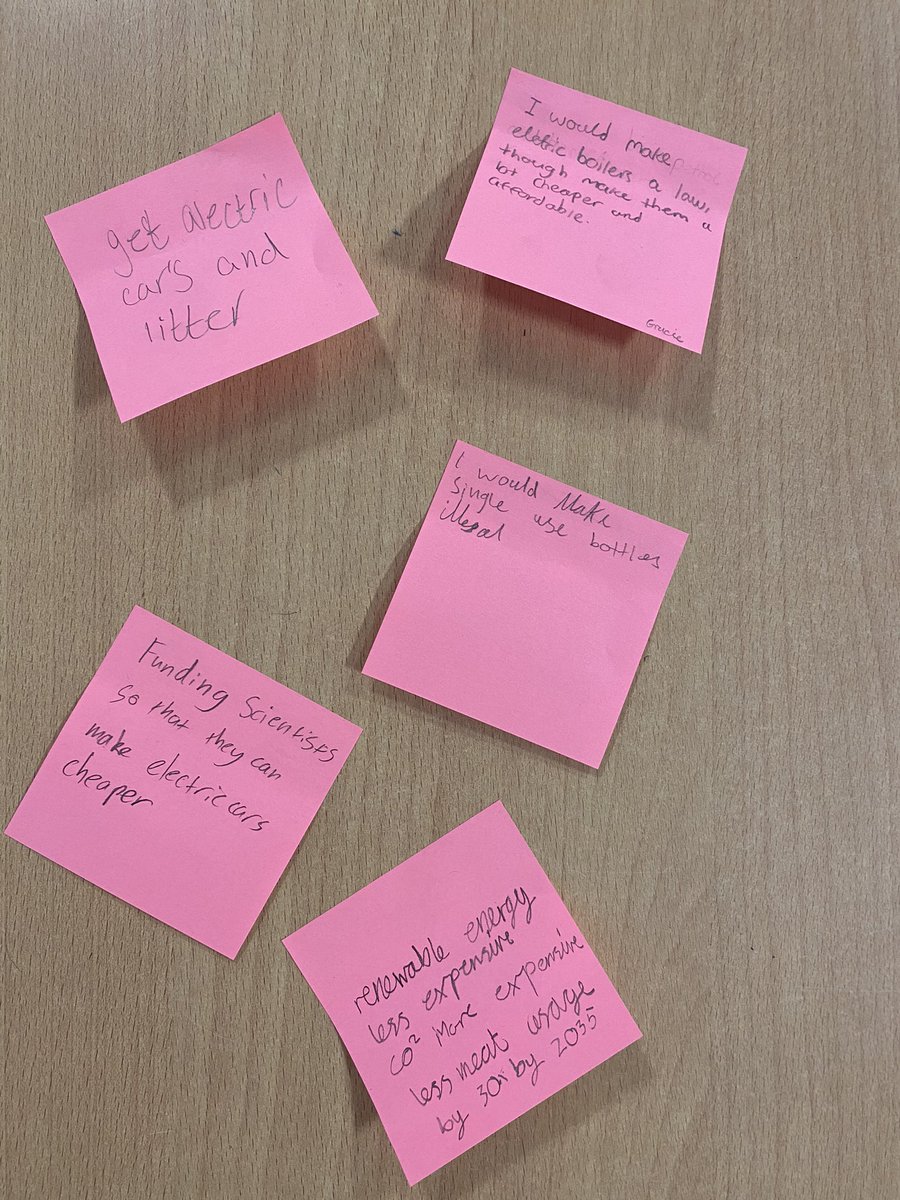 get electric
car's and
litter
I would make
eletric boilers a law,
though make them a
lot cheaper and
affordable.
Gracie
I would Make
Single use bottles
illegal
Funding Scientists
So that they can
make electric cars
cheaper
renewable energy
less expensive
CO² More expensive
less meat usage
by 30% by 2035